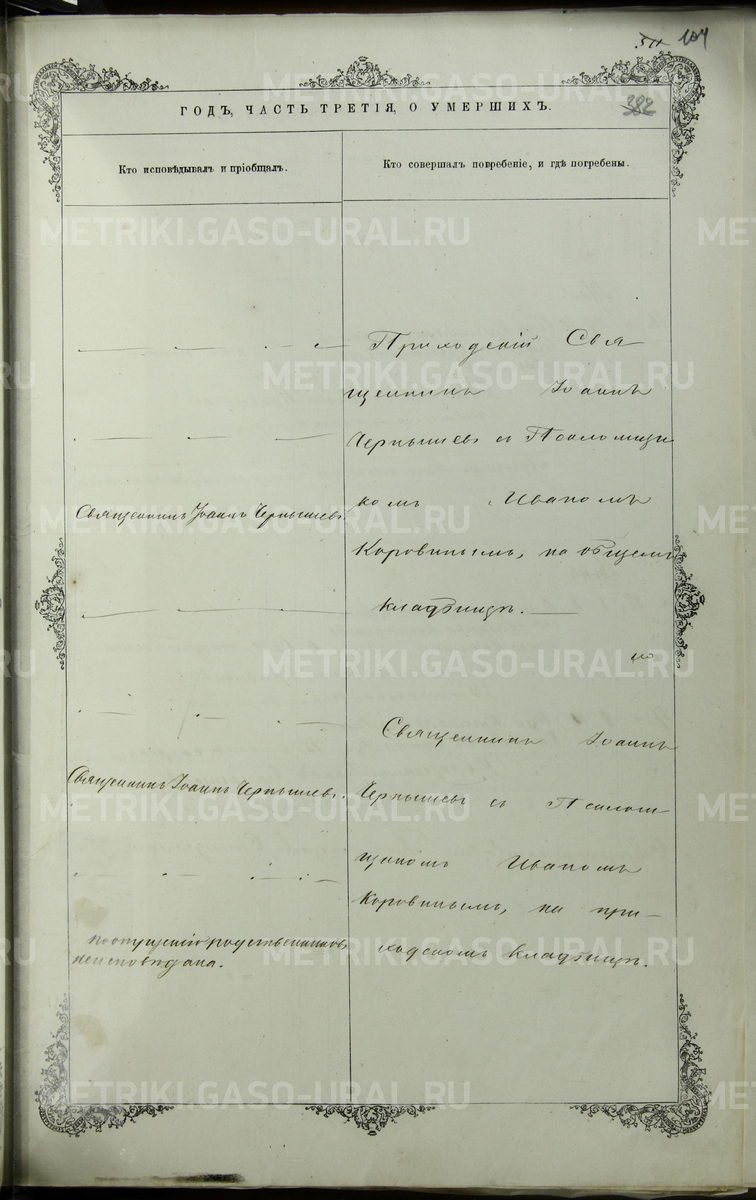 104
382
ГОДЪ, ЧАСТЬ ТРЕТІЯ, О УМЕРШИХЪ.
Кто исповѣдывалъ и пріобщалъ.
Кто совершалъ погребеніе, и гдѣ погребены.
Священникъ Іоаннъ Чернышевъ.
Священникъ Іоаннъ Чернышевъ.
по опущенію родственниковъ
неисповѣдана.
Приходскій Свя
щенникъ Іоаннъ
Чернышевъ съ Псаломщи
комъ Иваномъ
Коровинымъ, на общемъ
кладбищѣ.
Священникъ Іоаннъ
Чернышевъ съ Псалом
щикомъ Иваномъ
Коровинымъ, на при-
ходскомъ кладбищѣ.
METRIKI.GASO-URAL.RU